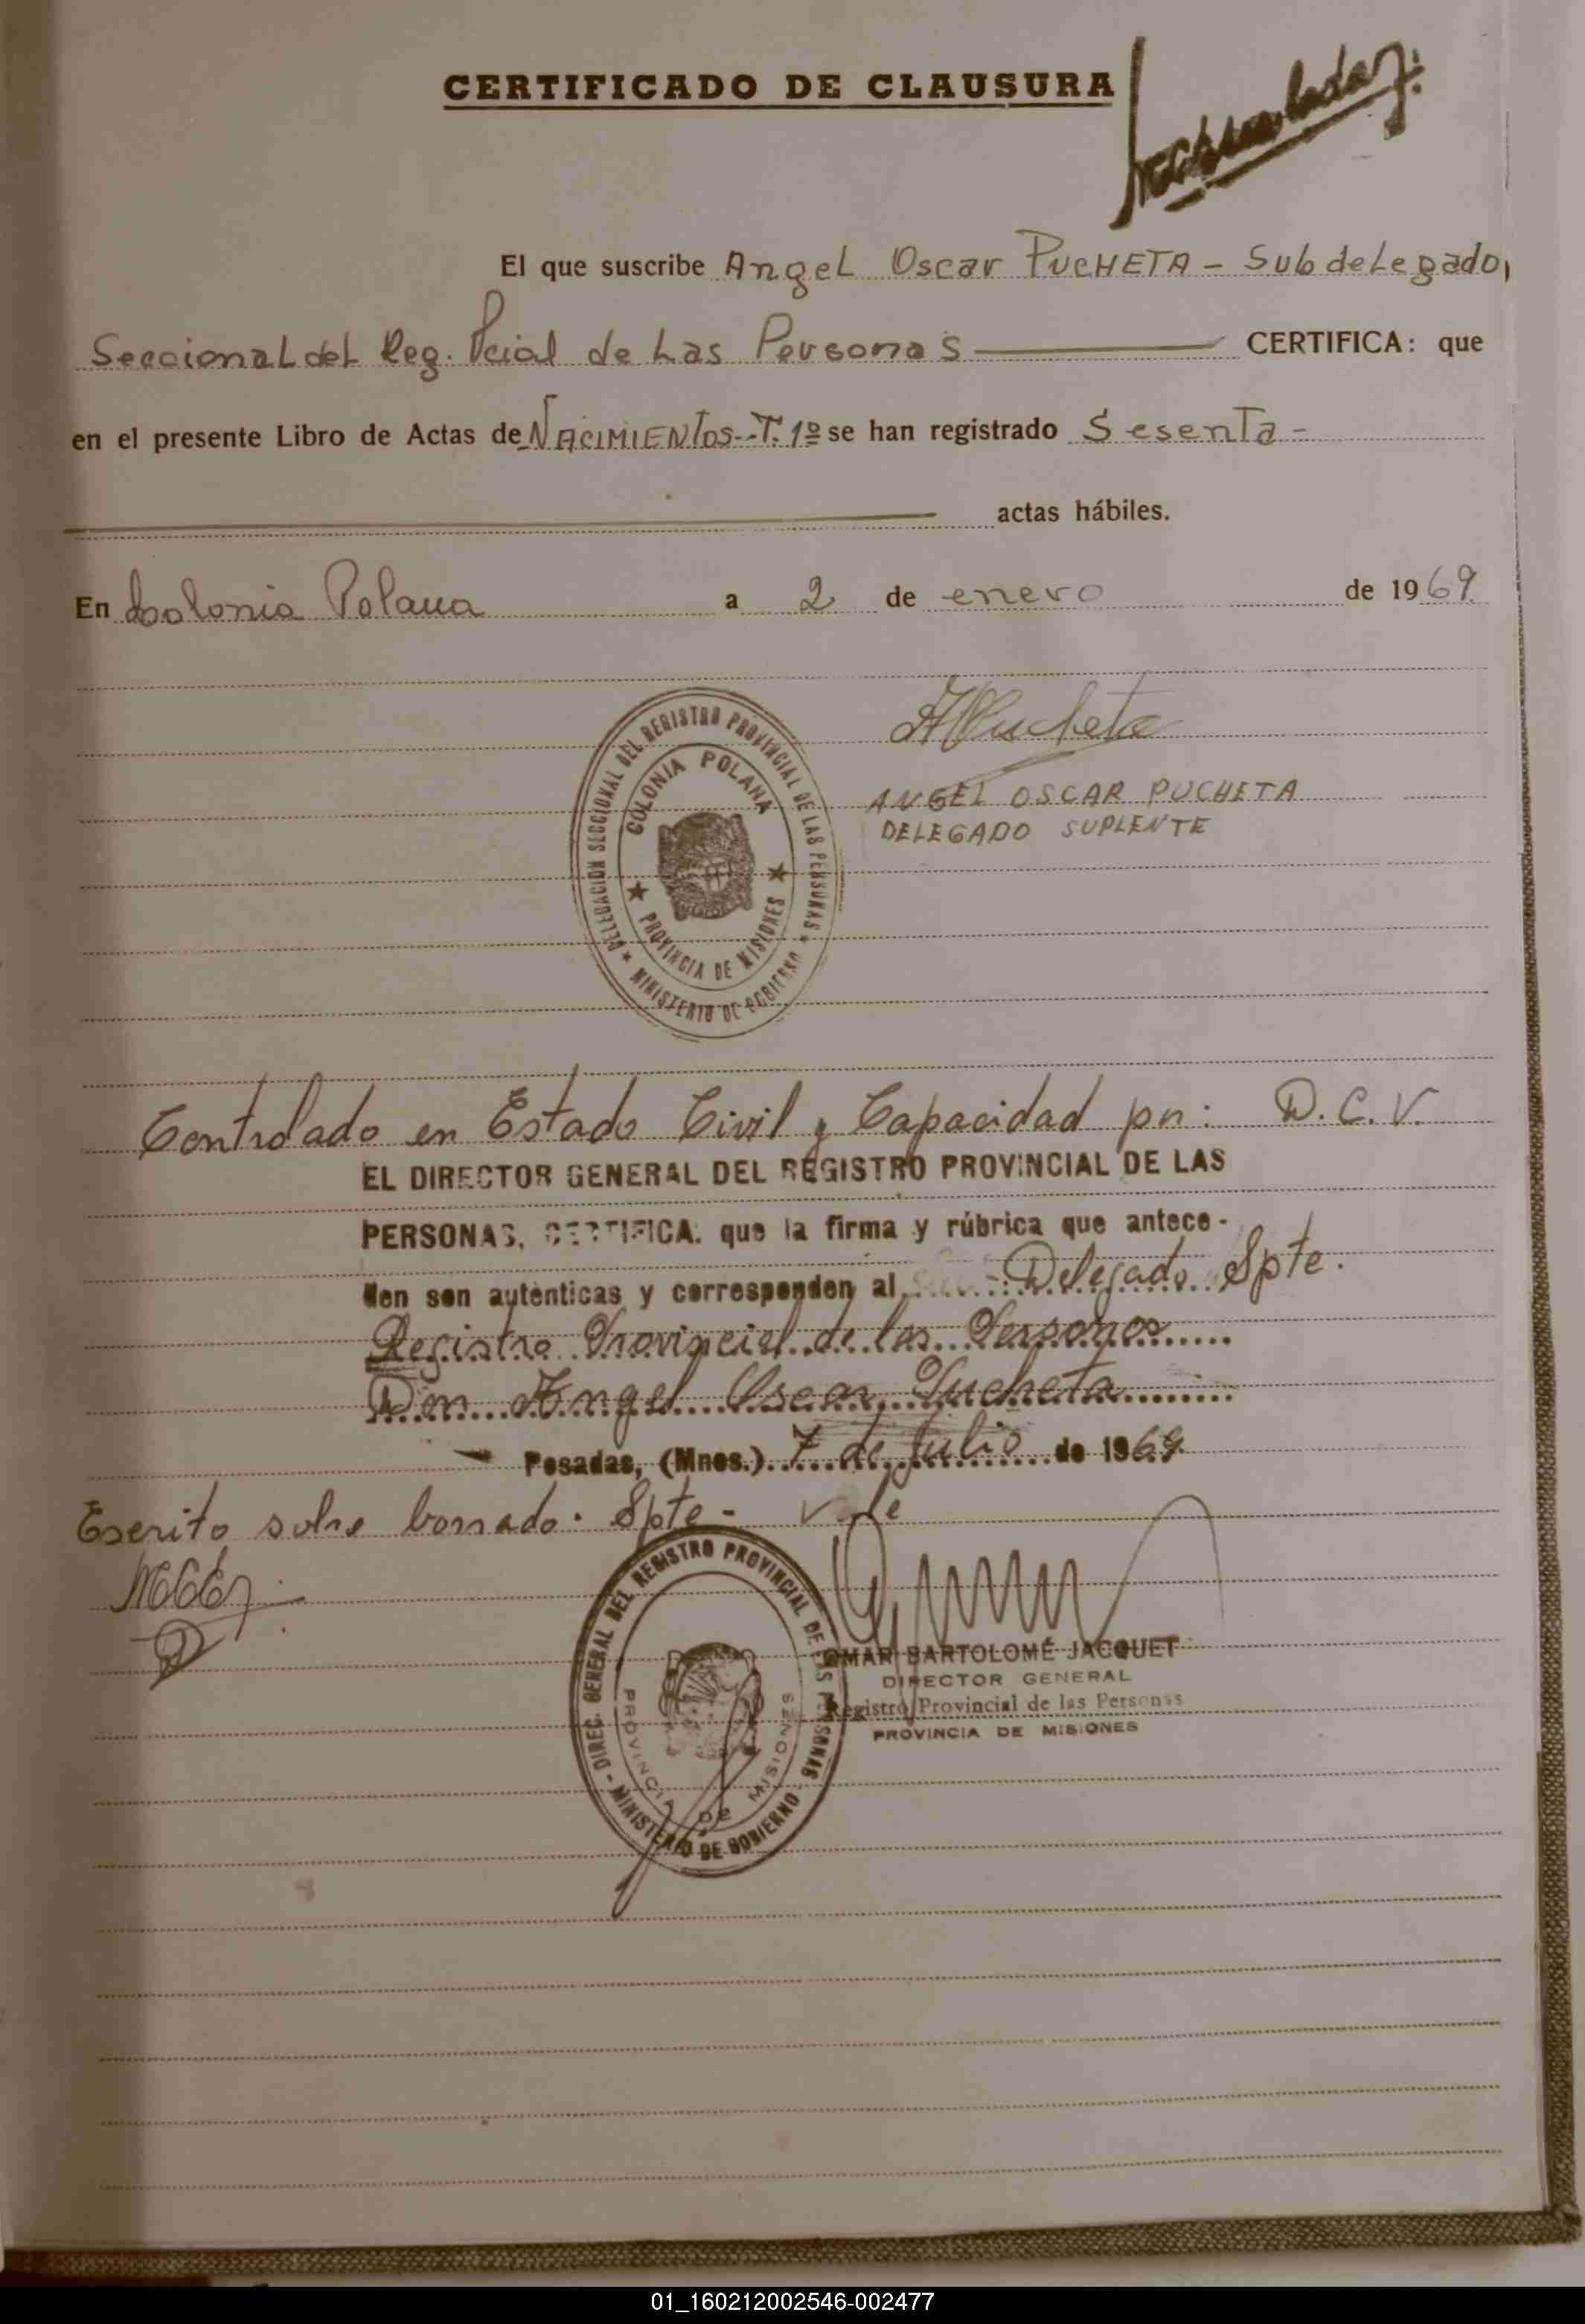 CERTIFICADO DE CLAUSURA
El que suscribe Angel Oscar PUCHETA - Subdelegado,
Seccional del Reg. Pcial de Las Personas CERTIFICA: que
en el presente Libro de Actas de NACIMIENTOS--T. 1º se han registrado Sesenta -
actas hábiles.
En Colonia Polana a 2 de enero de 1969.
DELEGACION SECCIONAL DEL REGISTRO PROVINCIAL DE LAS PERSONAS ★ MINISTERIO DE GOBIERNO ★
COLONIA POLANA
★ PROVINCIA DE MISIONES ★
APucheta
ANGEL OSCAR PUCHETA
DELEGADO SUPLENTE
Controlado en Estado Civil y Capacidad por: D.C.V.
EL DIRECTOR GENERAL DEL REGISTRO PROVINCIAL DE LAS
PERSONAS, CERTIFICA: que la firma y rúbrica que antece-
den son auténticas y corresponden al Delegado Spte.
Registro Provincial de las Personas
Don Angel Oscar Pucheta
Posadas, (Mnes.) 7 de Julio de 1969
Escrito sobre borrado. Spte - Vale
DIREC. GENERAL DEL REGISTRO PROVINCIAL DE LAS PERSONAS - MINISTERIO DE GOBIERNO -
PROVINCIA DE MISIONES
OMAR BARTOLOMÉ JACQUET
DIRECTOR GENERAL
Registro Provincial de las Personas
PROVINCIA DE MISIONES
01_160212002546-002477